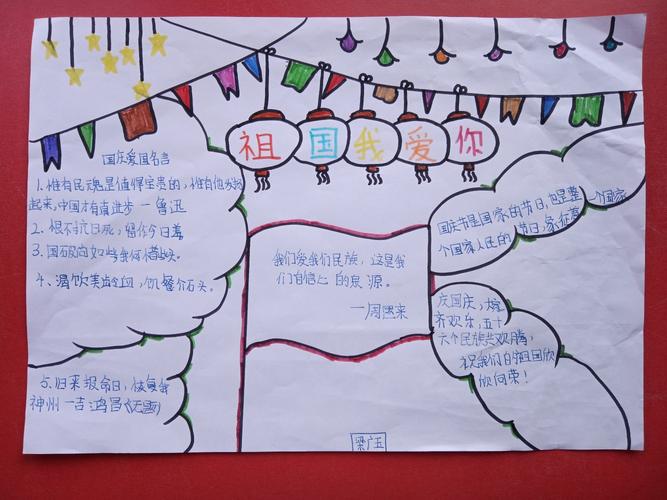 祖国我爱你
国庆爱国名言
1.惟有民魂是值得宝贵的,惟有他发扬
起来,中国才有真进步 — 鲁迅
2、恨不抗日死,留作今日羞
3、国破尚如此我何惜此头。
4、渴饮美龄血,饥餐介石头。
5.归来报命日,恢复我
神州 一 吉鸿昌《无题》
我们爱我们民族,这是我
们自信心的泉源。
—周恩来
国庆节是国家的节日,也是整一个国家
个国家人民的节日,象征着
庆国庆,
齐欢乐,五十
六个民族共欢腾,
祝我们的祖国欣
欣向荣!
梁广五